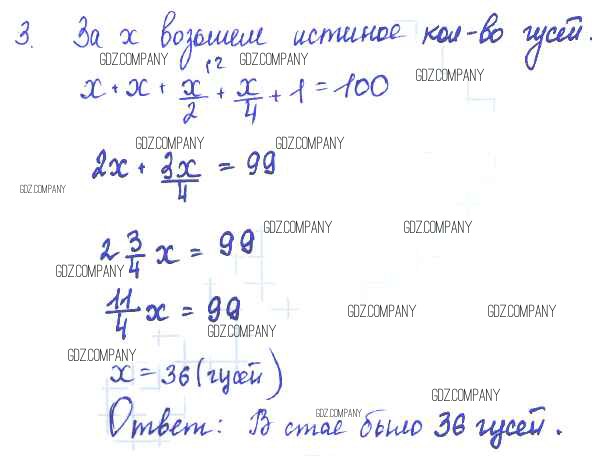 3. За x возьмем истиное кол-во гусей.
GDZ.COMPANY GDZ.COMPANY
x + x + x/2 + x/4 + 1 = 100
,2
GDZ.COMPANY
GDZ.COMPANY GDZ.COMPANY
2x + 3x/4 = 99
GDZ.COMPANY
GDZ.COMPANY GDZ.COMPANY
2 3/4 x = 99
GDZ.COMPANY
11/4 x = 99
GDZ.COMPANY GDZ.COMPANY
GDZ.COMPANY
GDZ.COMPANY
x = 36 (гусей)
GDZ.COMPANY
GDZ.COMPANY
Ответ: В стае было 36 гусей.